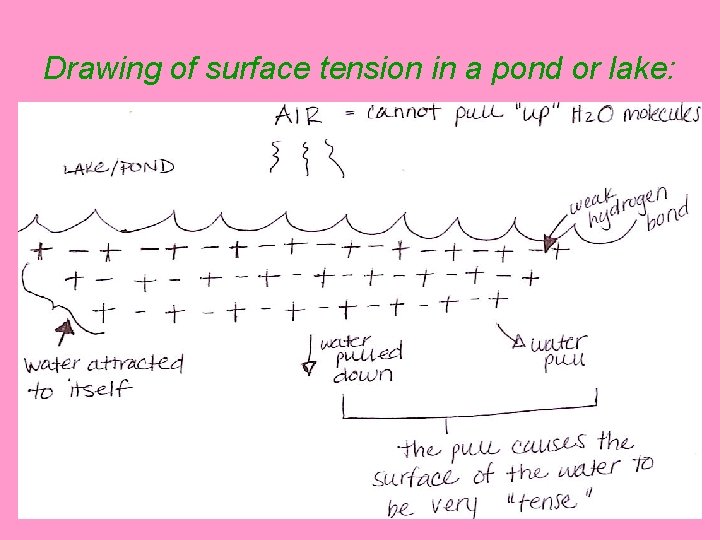 Drawing of surface tension in a pond or lake:
AIR = cannot pull "up" H2O molecules
LAKE/POND
weak
hydrogen
bond
+ - + - + - + - + - + - + - + - +
+ - + - + - + - + - + - +
+ - + - + - + - + - + - +
water attracted
to itself
water
pulled
down
water
pull
the pull causes the
surface of the water to
be very "tense"